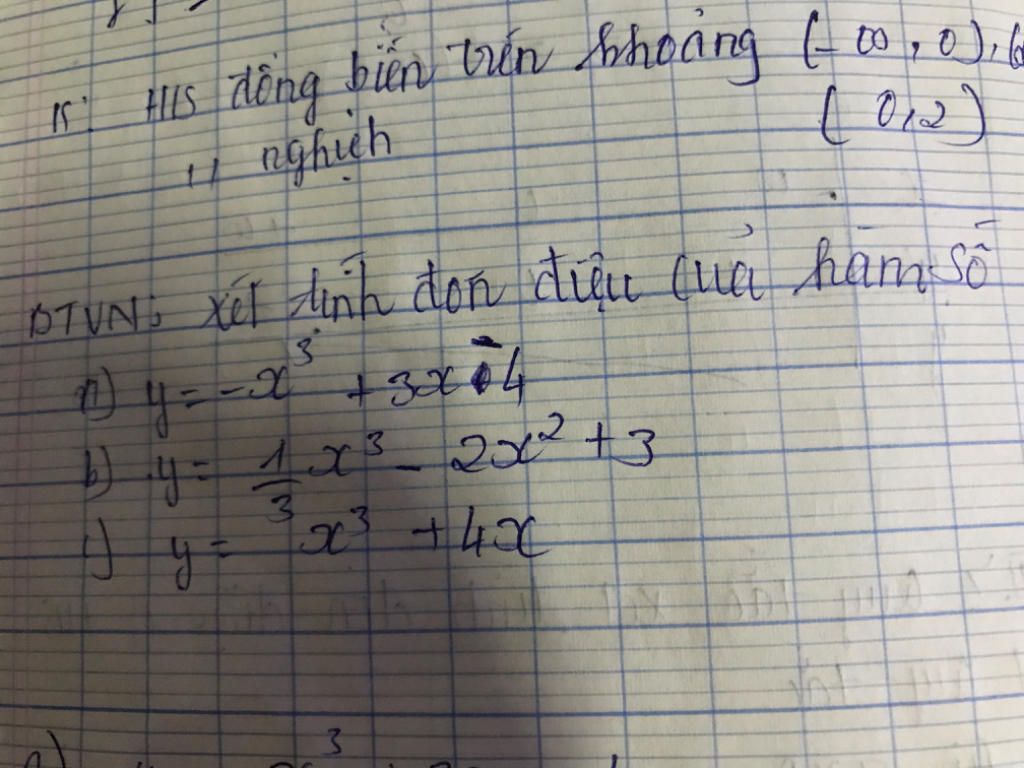 K: H/S đồng biến trên khoảng (-∞, 0),
" nghịch (0,2)
BTVN: xét tính đơn điệu của hàm số
a) y = -x³ + 3x - 4
b) y = 1/3 x³ - 2x² + 3
c) y = x³ + 4x